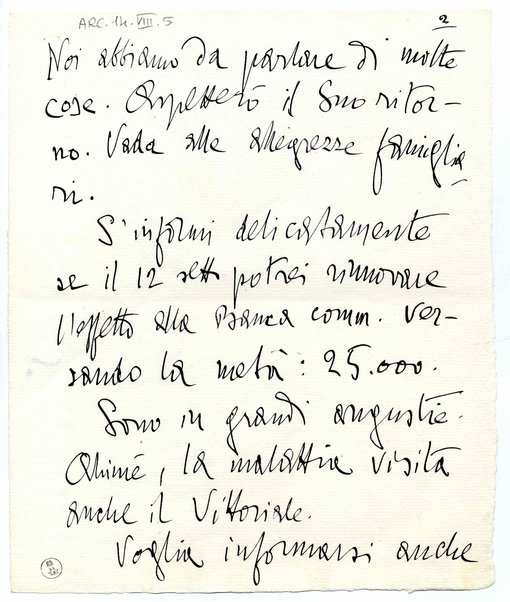 ARC. 14. VIII. 5
2
Noi abbiamo da parlare di molte
cose. Aspetterò il Suo ritor-
no. Vada alle allegrezze famiglia
ri.
S'informi delicatamente
se il 12 sett. potrei rinnovare
l'effetto alla Banca comm. ver-
sando la metà: 25.000.
Sono in grandi angustie.
Ahimé, la malattia visita
anche il Vittoriale.
Voglia informarsi anche